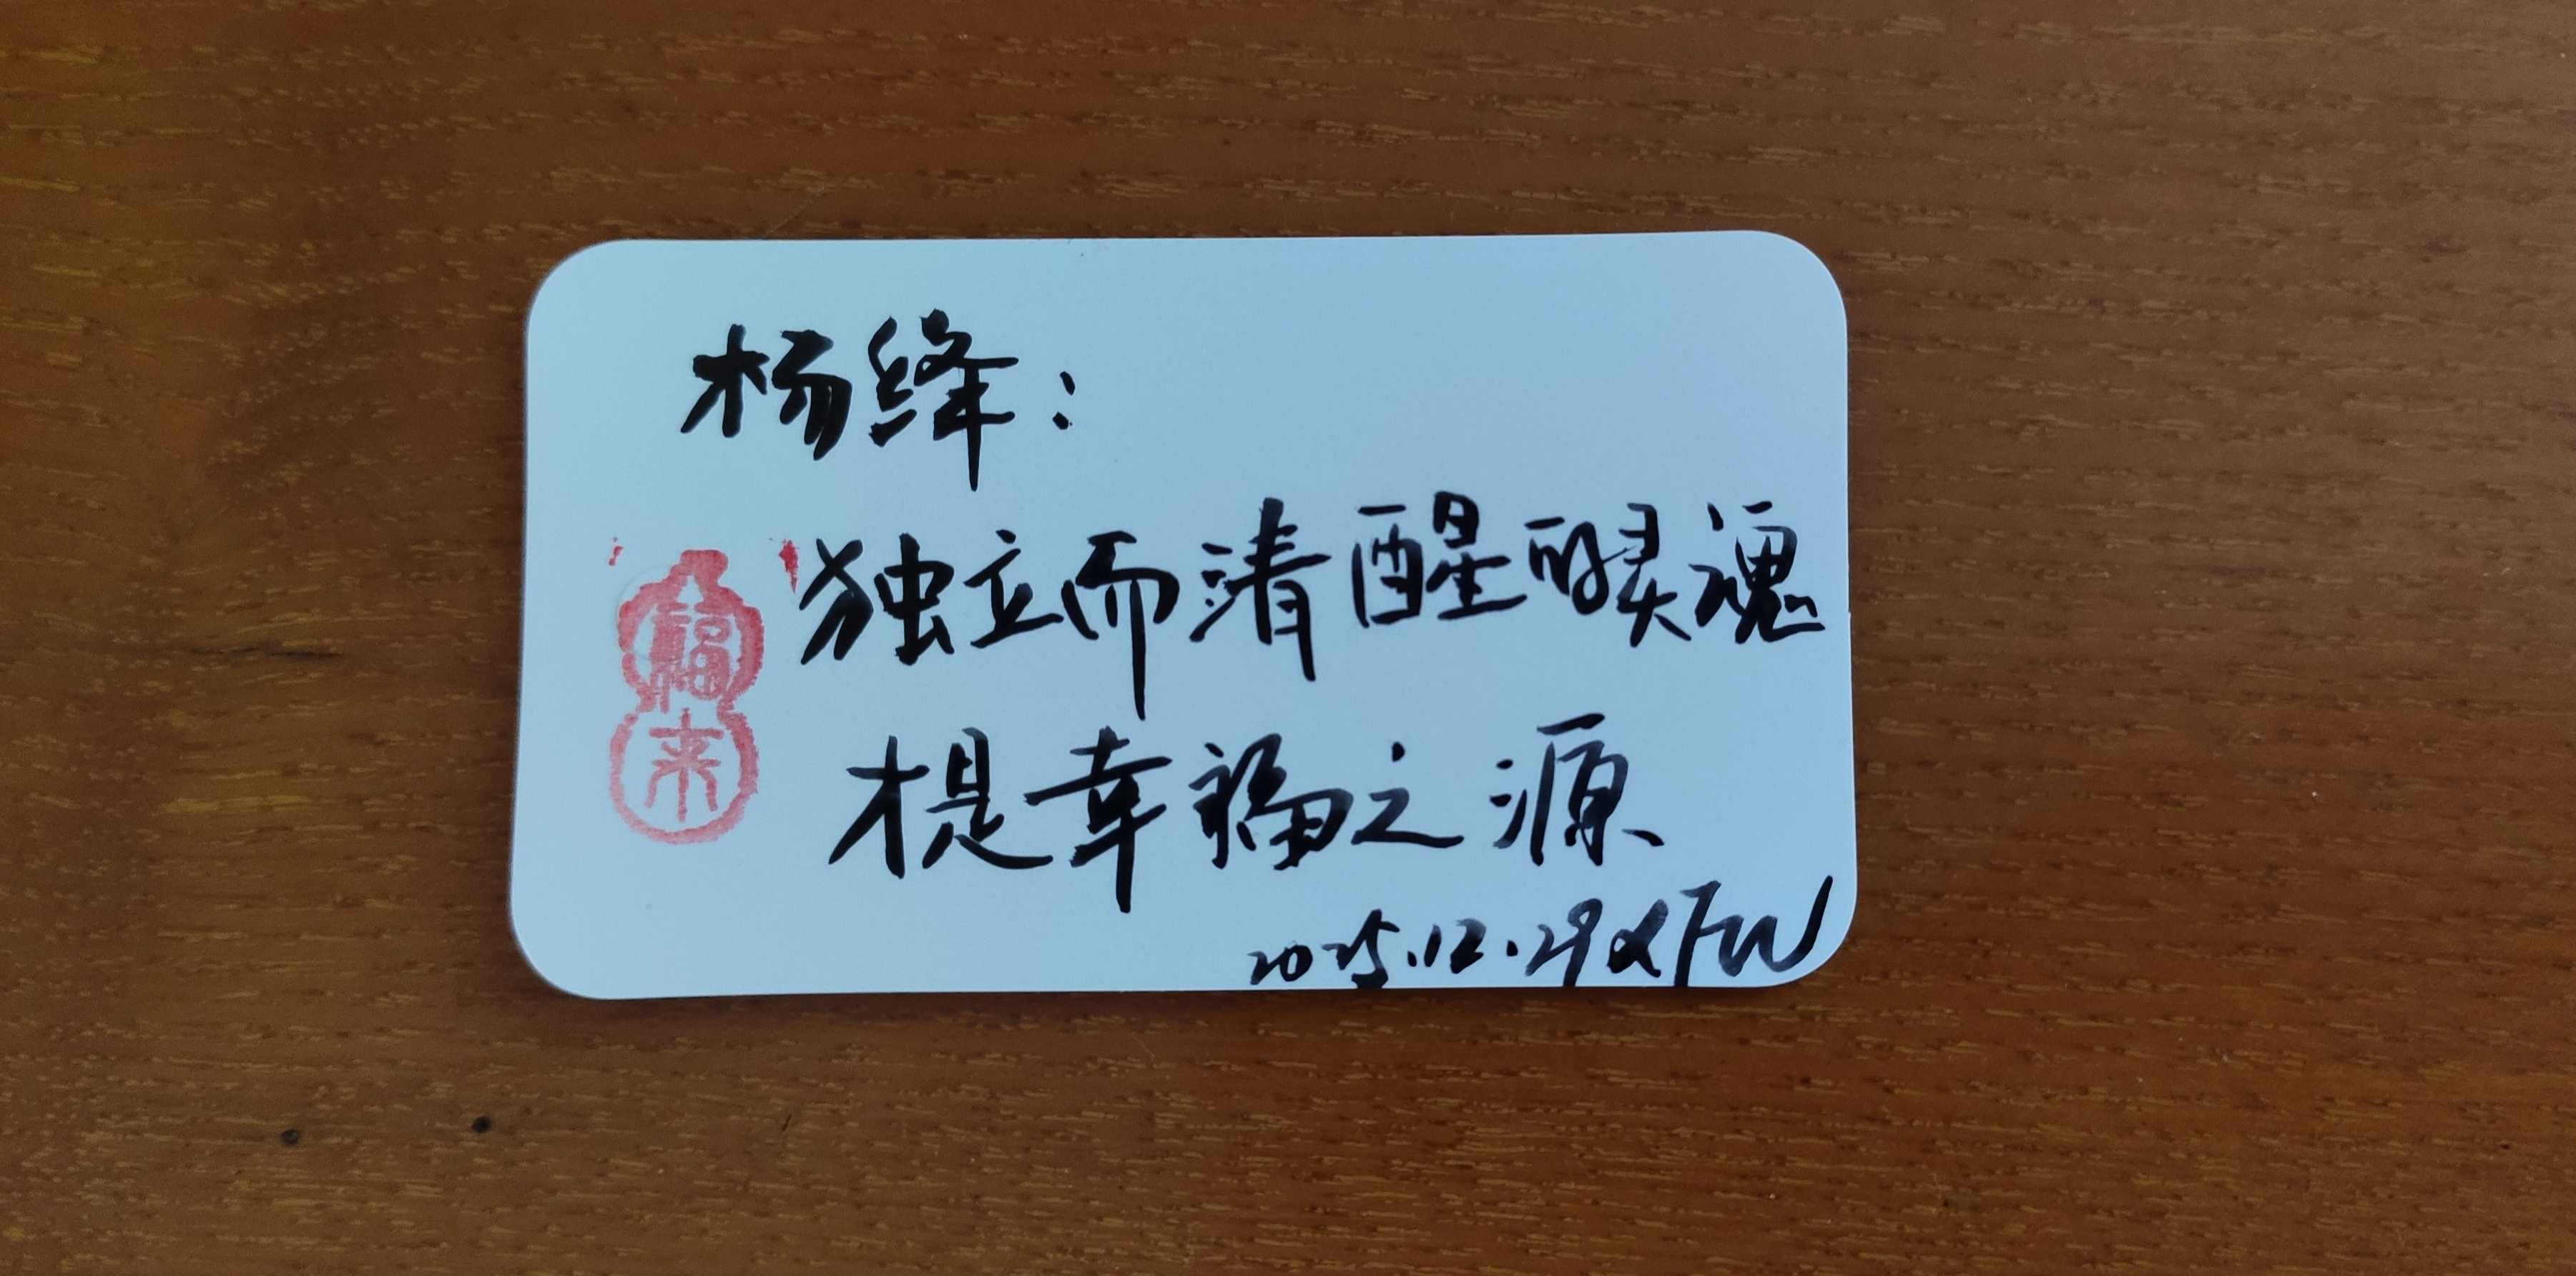 杨绛：
独立而清醒的灵魂
才是幸福之源
2025.12.29 XFW
福来